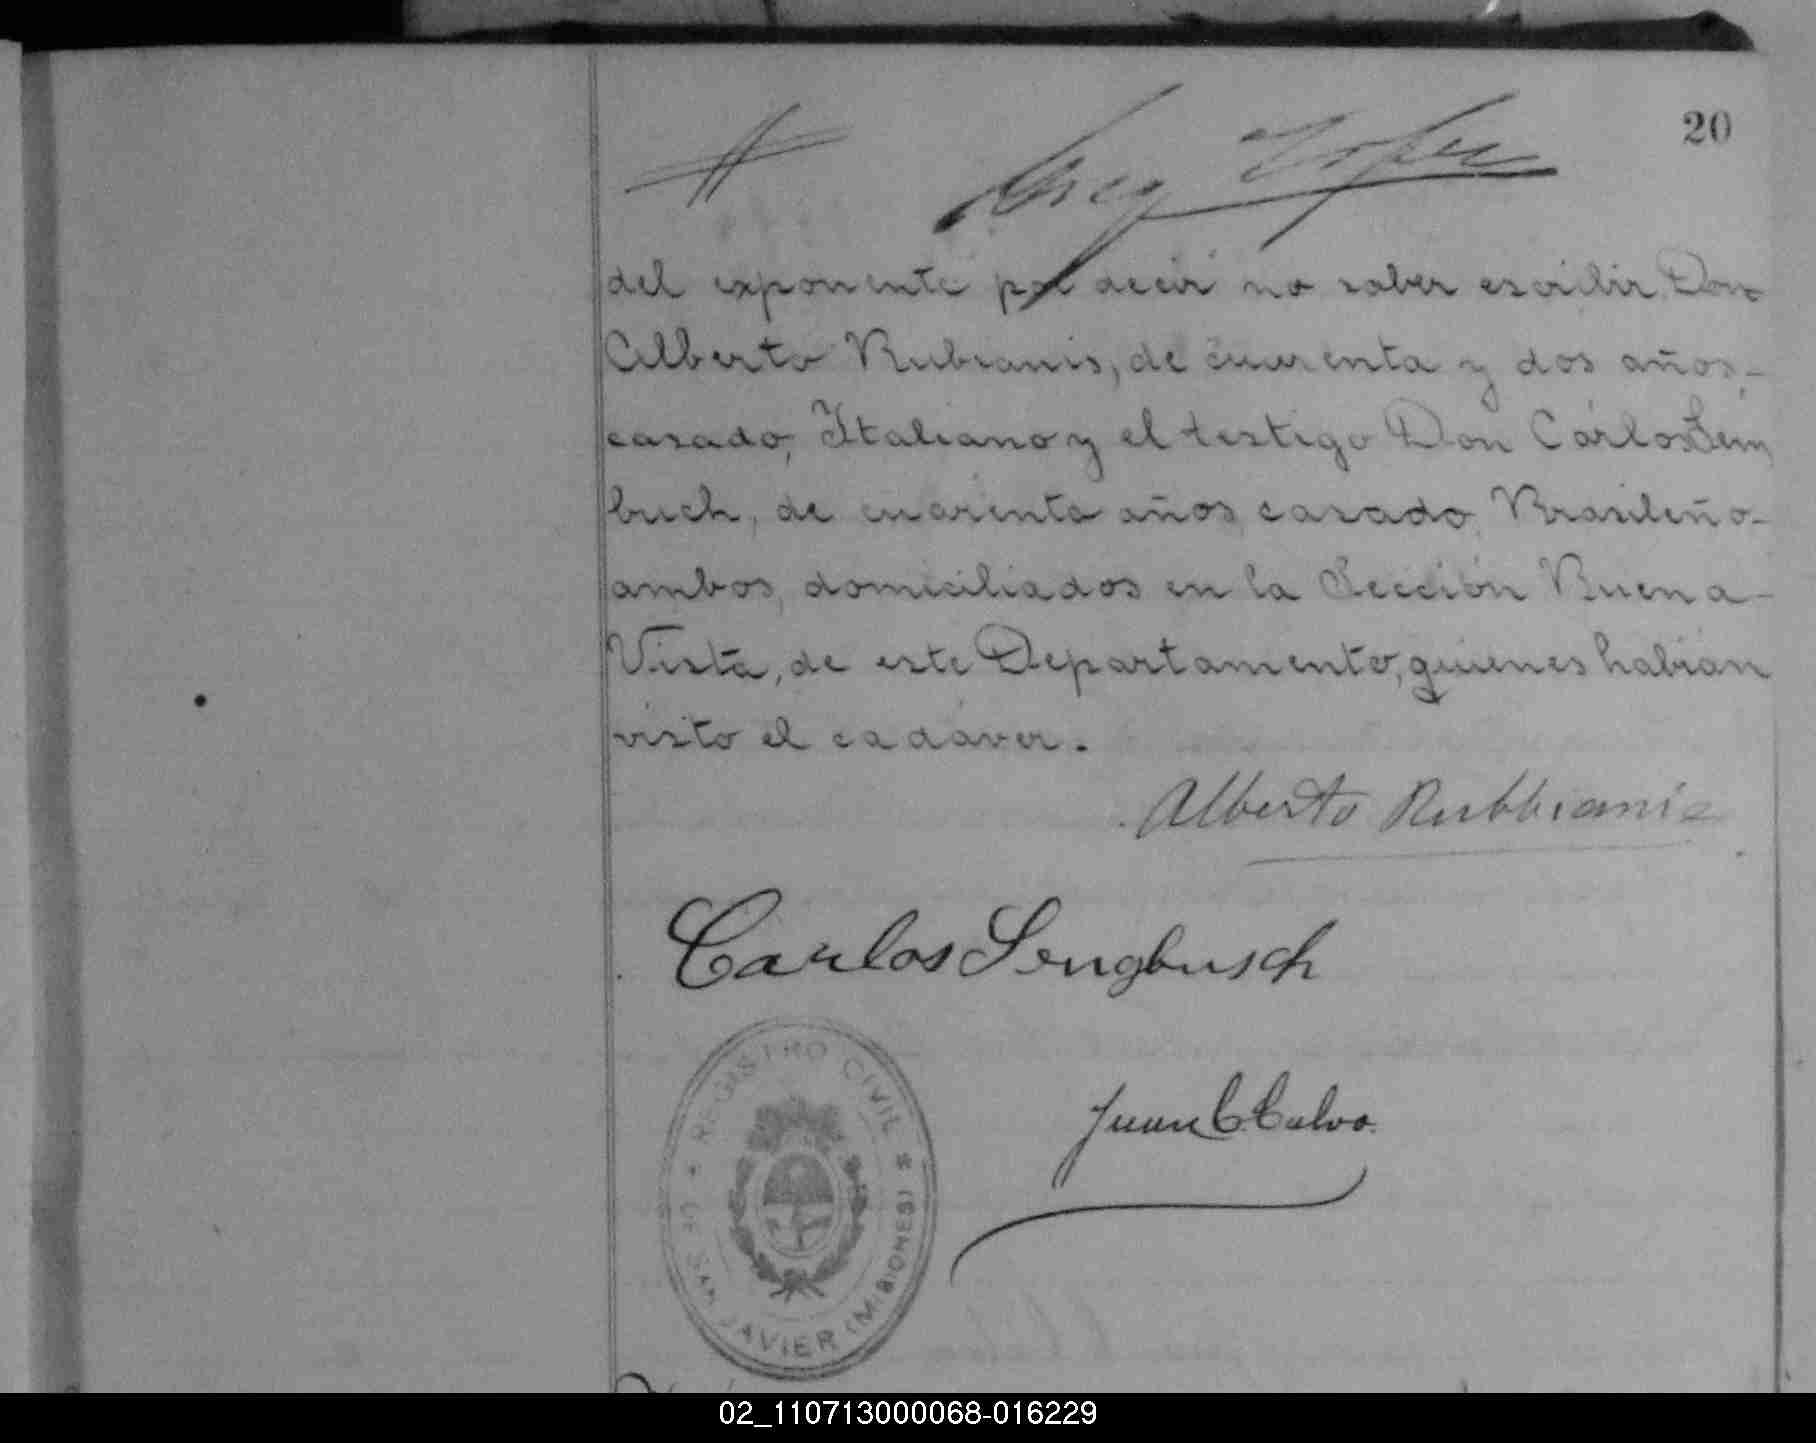 20
Lopez
del exponente por decir no saber escribir Don
Alberto Rubianis, de cuarenta y dos años,-
casado, Italiano y el testigo Don Cárlos Sem
buch, de cuarenta años, casado, Brasileño-
ambos, domiciliados en la Sección Buena-
Vista, de este Departamento, quienes habian
visto el cadáver.
Alberto Rubbianis
Carlos Sengbusch
REGISTRO CIVIL
DE SAN JAVIER (MISIONES)
Juan C. Calvo.
02_110713000068-016229